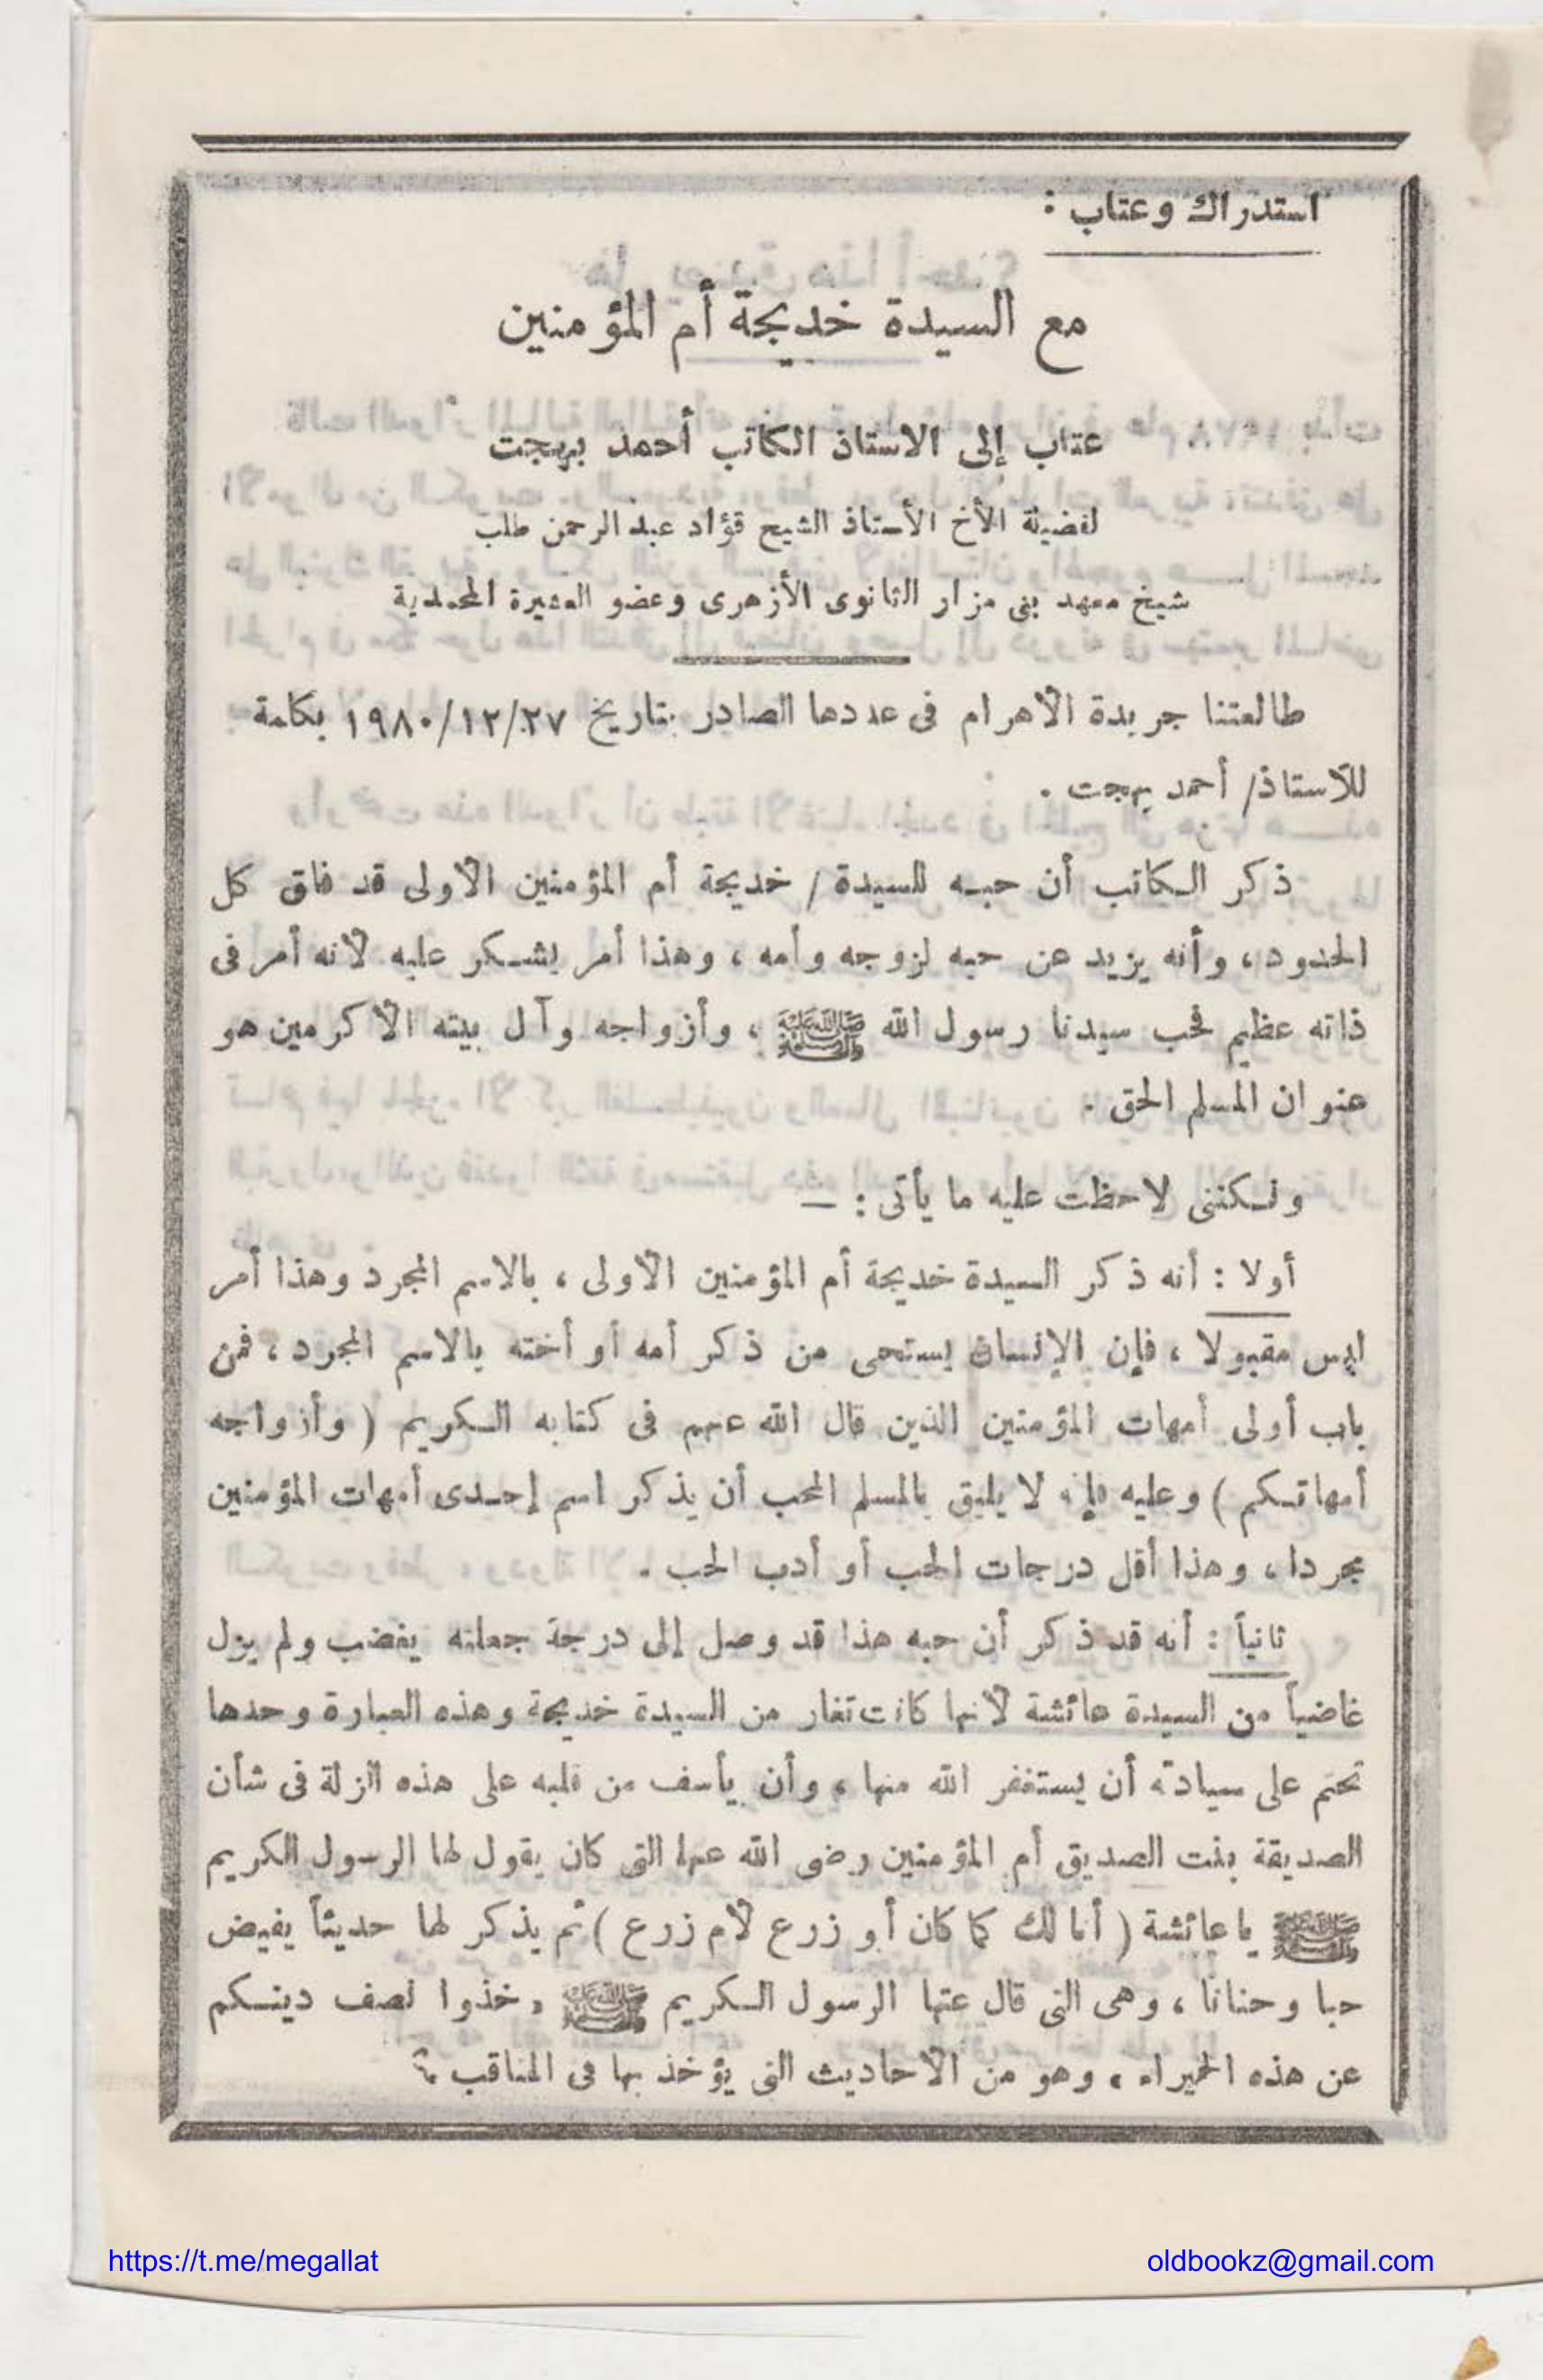 استدراك وعتاب :
مع السيدة خديجة أم المؤمنين
عتاب إلى الاستاذ الكاتب أحمد بهجت
لفضيلة الأخ الأستاذ الشيخ فؤاد عبد الرحمن طلب
شيخ معهد بنى مزار الثانوى الأزهرى وعضو العشيرة المحمدية
طالعتنا جريدة الأهرام فى عددها الصادر بتاريخ ١٩٨٠/١٢/٢٧ بكلمة
للأستاذ/ أحمد بهجت .
ذكر الكاتب أن حبه للسيدة / خديجة أم المؤمنين الأولى قد فاق كل
الحدود ، وأنه يزيد عن حبه لزوجه وأمه ، وهذا أمر يشكر عليه لأنه أمر فى
ذاته عظيم فحب سيدنا رسول الله ﷺ ، وأزواجه وآل بيته الأكرمين هو
عنوان المسلم الحق .
ولكننى لاحظت عليه ما يأتى : —
أولا : أنه ذكر السيدة خديجة أم المؤمنين الأولى ، بالاسم المجرد وهذا أمر
ليس مقبولا ، فإن الإنسان يستحى من ذكر أمه أو أخته بالاسم المجرد ، فمن
باب أولى أمهات المؤمنين الذين قال الله عنهم فى كتابه الكريم ( وأزواجه
أمهاتكم ) وعليه فإنه لا يليق بالمسلم المحب أن يذكر اسم إحدى أمهات المؤمنين
مجردا ، وهذا أقل درجات الحب أو أدب الحب .
ثانياً : أنه قد ذكر أن حبه هذا قد وصل إلى درجة جعلته يغضب ولم يزل
غاضباً من السيدة عائشة لأنها كانت تغار من السيدة خديجة وهذه العبارة وحدها
تحتم على سيادته أن يستغفر الله منها ، وأن يأسف من قلبه على هذه الزلة فى شأن
الصديقة بنت الصديق أم المؤمنين رضى الله عنها التى كان يقول لها الرسول الكريم
ﷺ يا عائشة ( أنا لك كما كان أبو زرع لأم زرع ) ثم يذكر لها حديثاً يفيض
حبا وحنانا ، وهى التى قال عنها الرسول الكريم ﷺ « خذوا نصف دينكم
عن هذه الحميراء » وهو من الأحاديث التى يؤخذ بها فى المناقب ؟
https://t.me/megallat
oldbookz@gmail.com